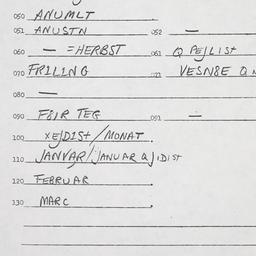 050 ANUMLT
051 ANUSTN 052 —
060 — = HERBST 061 Q PEJLIST
070 FRILING 071 VESNBE Q
080 —
090 FØIR TEG 091 —
100 XEJDIST / MONAT
110 JANVAR / JANUAR Q JIDIST
120 FEBRUAR
130 MARC